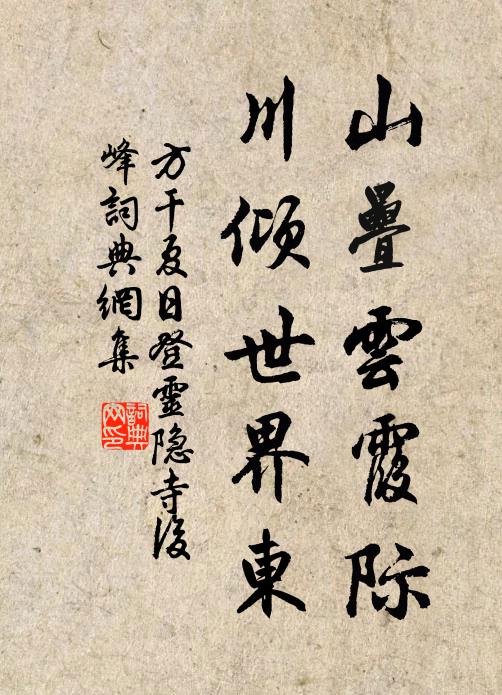 山疊雲霞际
川倾世界東
方干夏日登靈隐寺後
峰詞典網集
詞典
网印